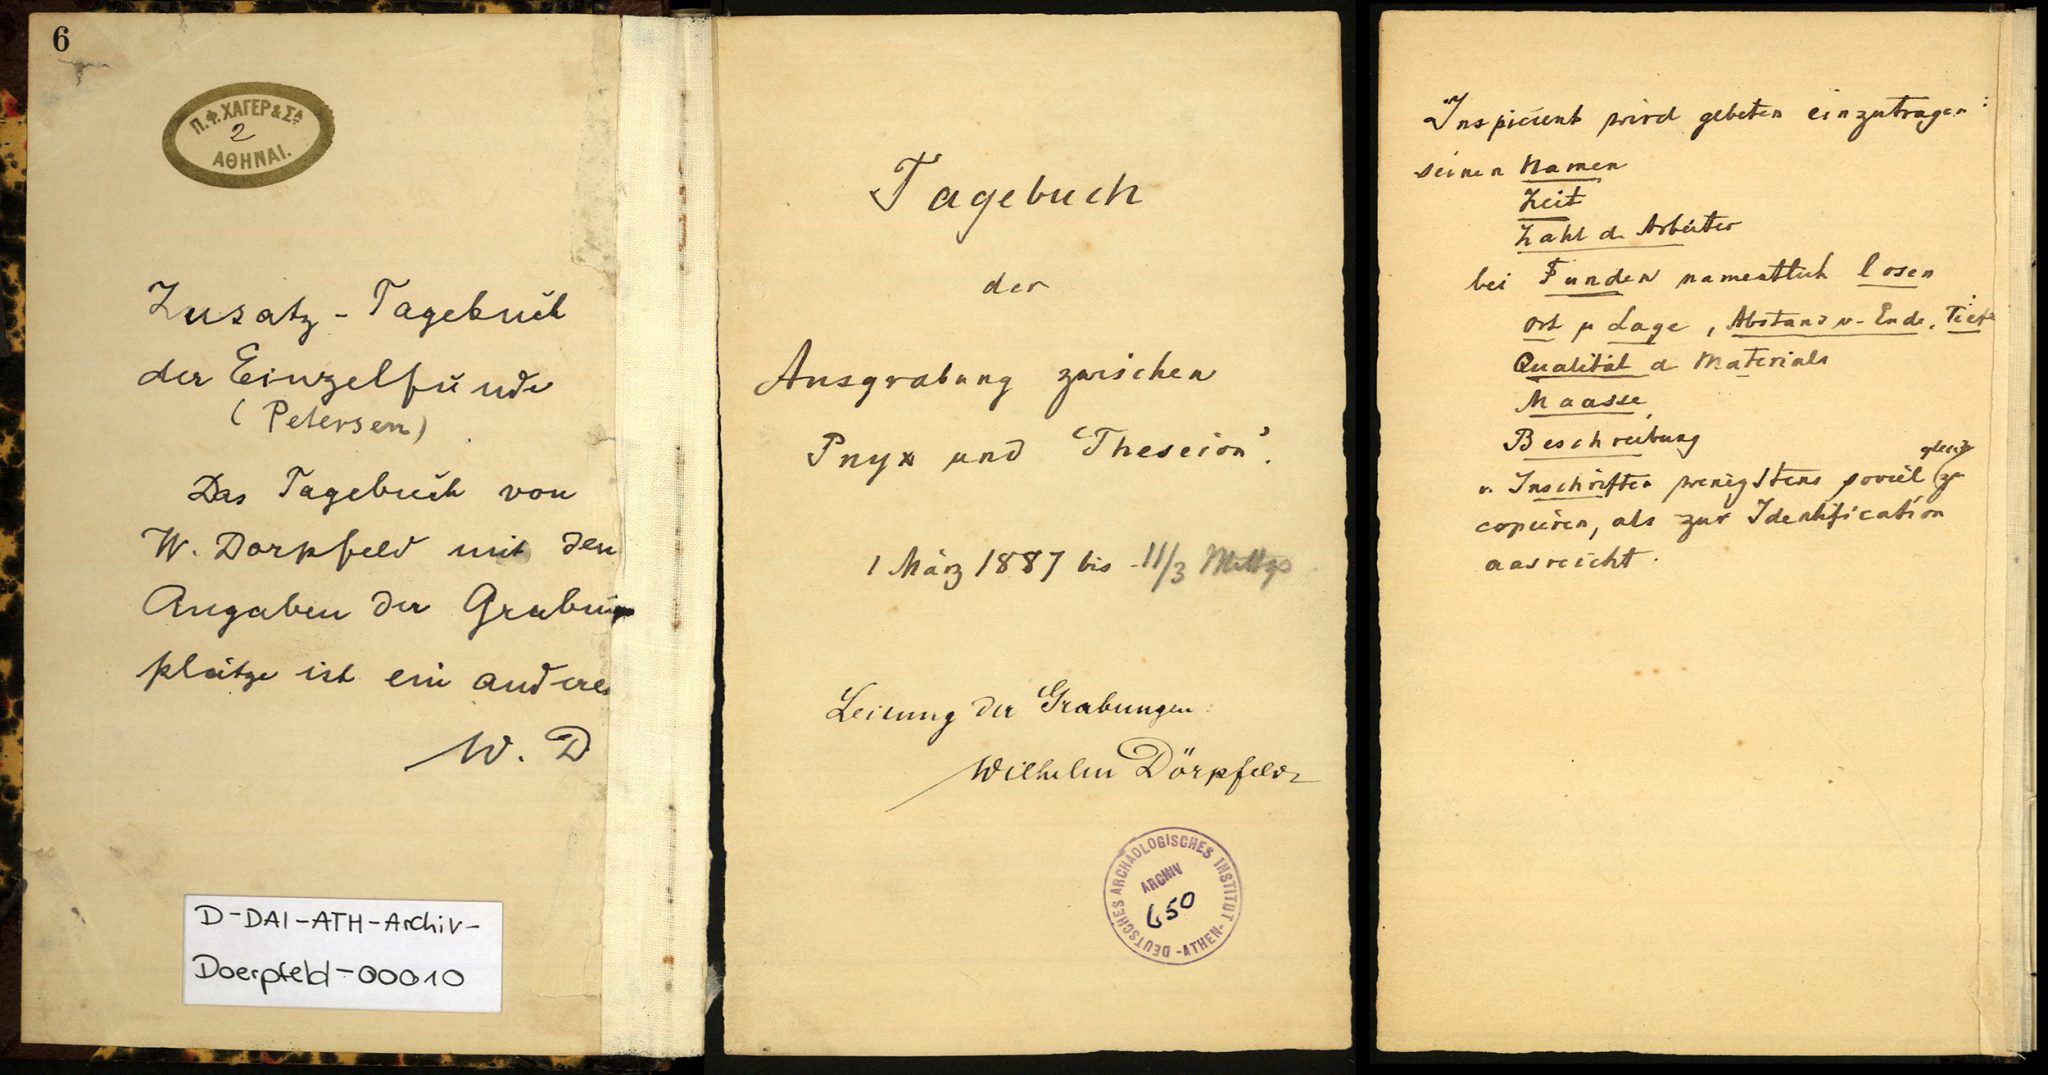 6
Π.Φ.ΧΑΓΕΡ & Σᴬ
2
ΑΘΗΝΑΙ.
Zusatz-Tagebuch
der Einzelfunde
(Petersen)
Das Tagebuch von
W. Dörpfeld mit den
Angaben der Grabungs
plätze ist ein anderes
W. D
D-DAI-ATH-Archiv-
Doerpfeld-00010
Tagebuch
der
Ausgrabung zwischen
Pnyx und 'Theseion'.
1 März 1887 bis 11/3 Mittgs
Leitung der Grabungen:
Wilhelm Dörpfeld
DEUTSCHES ARCHÄOLOGISCHES INSTITUT -ATHEN-
ARCHIV
650
Inspicient wird gebeten einzutragen:
seinen Namen
Zeit
Zahl d. Arbeiter
bei Funden namentlich losen
Ort u Lage, Abstand v. Ende, Tiefe
Qualität d Materials
Maasse
Beschreibung
v. Inschriften wenigstens soviel gleich zu
copieren, als zur Identification
ausreicht.